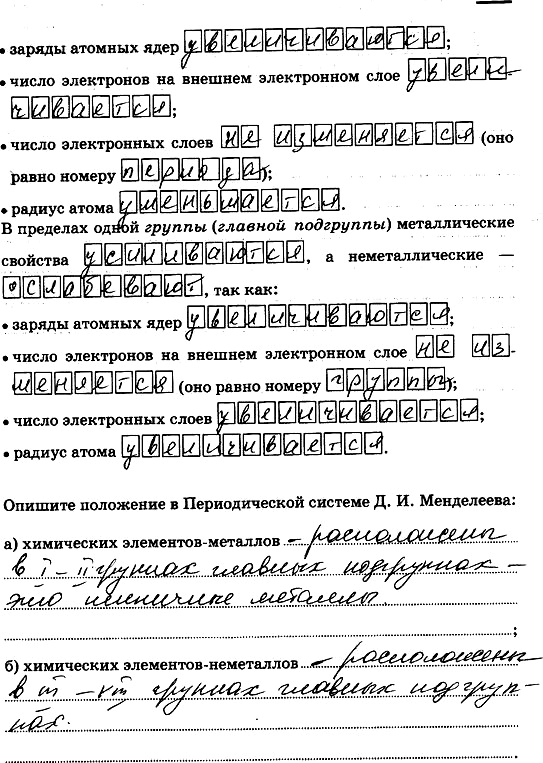 • заряды атомных ядер увеличиваются;
• число электронов на внешнем электронном слое увели-
чивается;
• число электронных слоев не изменяется (оно
равно номеру периода);
• радиус атома уменьшается.
В пределах одной группы (главной подгруппы) металлические
свойства усиливаются, а неметаллические —
ослабевают, так как:
• заряды атомных ядер увеличиваются;
• число электронов на внешнем электронном слое не из-
меняется (оно равно номеру группы);
• число электронных слоев увеличивается;
• радиус атома увеличивается.
Опишите положение в Периодической системе Д. И. Менделеева:
а) химических элементов-металлов – расположены
в I – II группах главных подгруппах –
это типичные металлы.
;
б) химических элементов-неметаллов – расположены
в III – VIII группах главных подгруп-
пах.
.